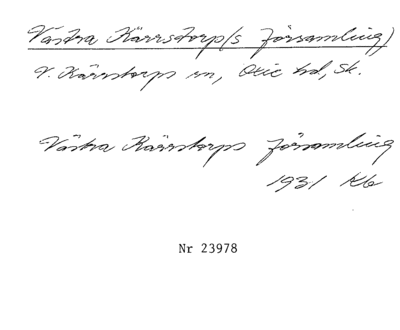 Västra Kärrstorp(s församling)
V. Kärrstorps sn, Oxie hd, Sk.
Västra Kärrstorps församling
1931 Kb
Nr 23978